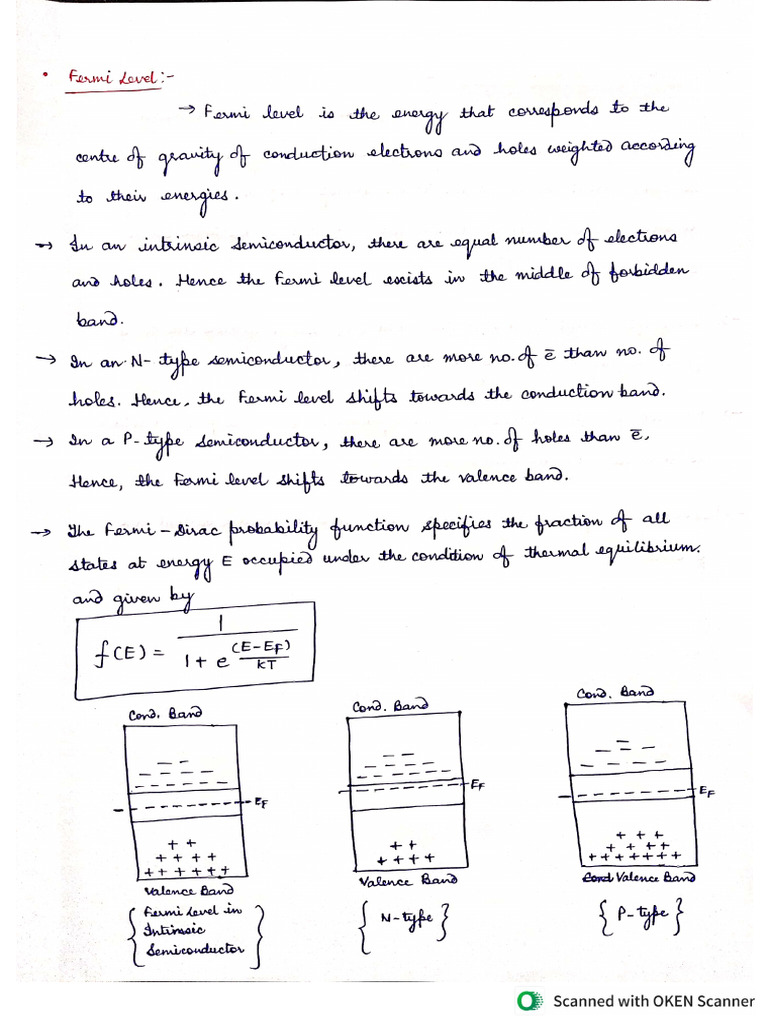 • Fermi Level:-
→ Fermi level is the energy that corresponds to the
centre of gravity of conduction electrons and holes weighted according
to their energies.
→ In an intrinsic semiconductor, there are equal number of electrons
and holes. Hence the Fermi level excists in the middle of forbidden
band.
→ In an N-type semiconductor, there are more no. of ē than no. of
holes. Hence, the Fermi level shifts towards the conduction band.
→ In a P-type semiconductor, there are more no. of holes than ē.
Hence, the Fermi level shifts towards the valence band.
→ The Fermi-Dirac probability function specifies the fraction of all
states at energy E occupied under the condition of thermal equilibrium.
and given by
f(E) = 1 / 1 + e (E-EF)/KT
Cond. Band Cond. Band Cond. Band
EF EF EF
Valence Band Valence Band Cond Valence Band
{Fermi Level in
Intrinsic
Semiconductor}
{N-type}
{P-type}
Scanned with OKEN Scanner